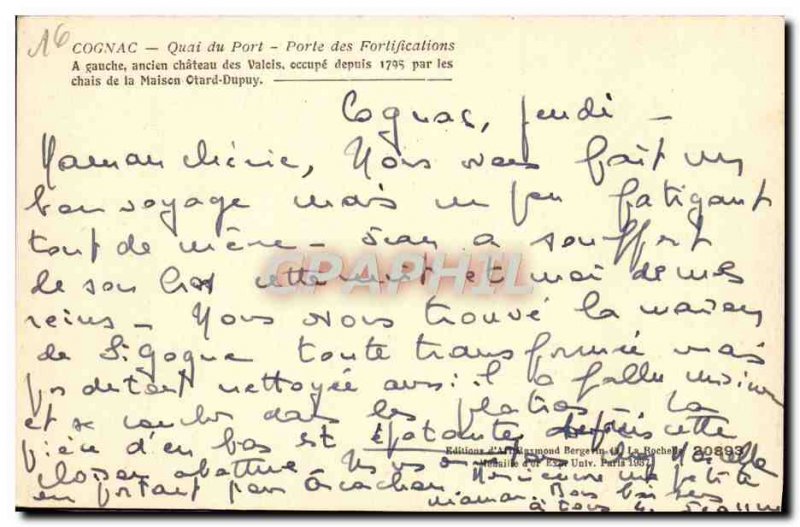 A6
COGNAC — Quai du Port - Porte des Fortifications
A gauche, ancien château des Valois, occupé depuis 1795 par les
chais de la Maison Otard-Dupuy.
Cognac, jeudi -
Maman chérie, Nous avons fait un
bon voyage mais un peu fatigant
tout de même - Jean a souffert
de son bras cette nuit et moi de mes
reins - Nous avons trouvé la maison
de St Gogue toute transformée mais
pas du tout nettoyée aussi il a fallu
et se coucher dans les platras - La
pièce d'en bas est épatante depuis cette
cloison abattue Nous
en partant par Arcachon une petite
maman Bons baisers
à tous
Editions d'Art Raymond Bergevin La Rochelle 20893
Médaille d'Or Exp. Univ. Paris 1937
GRAPHIL